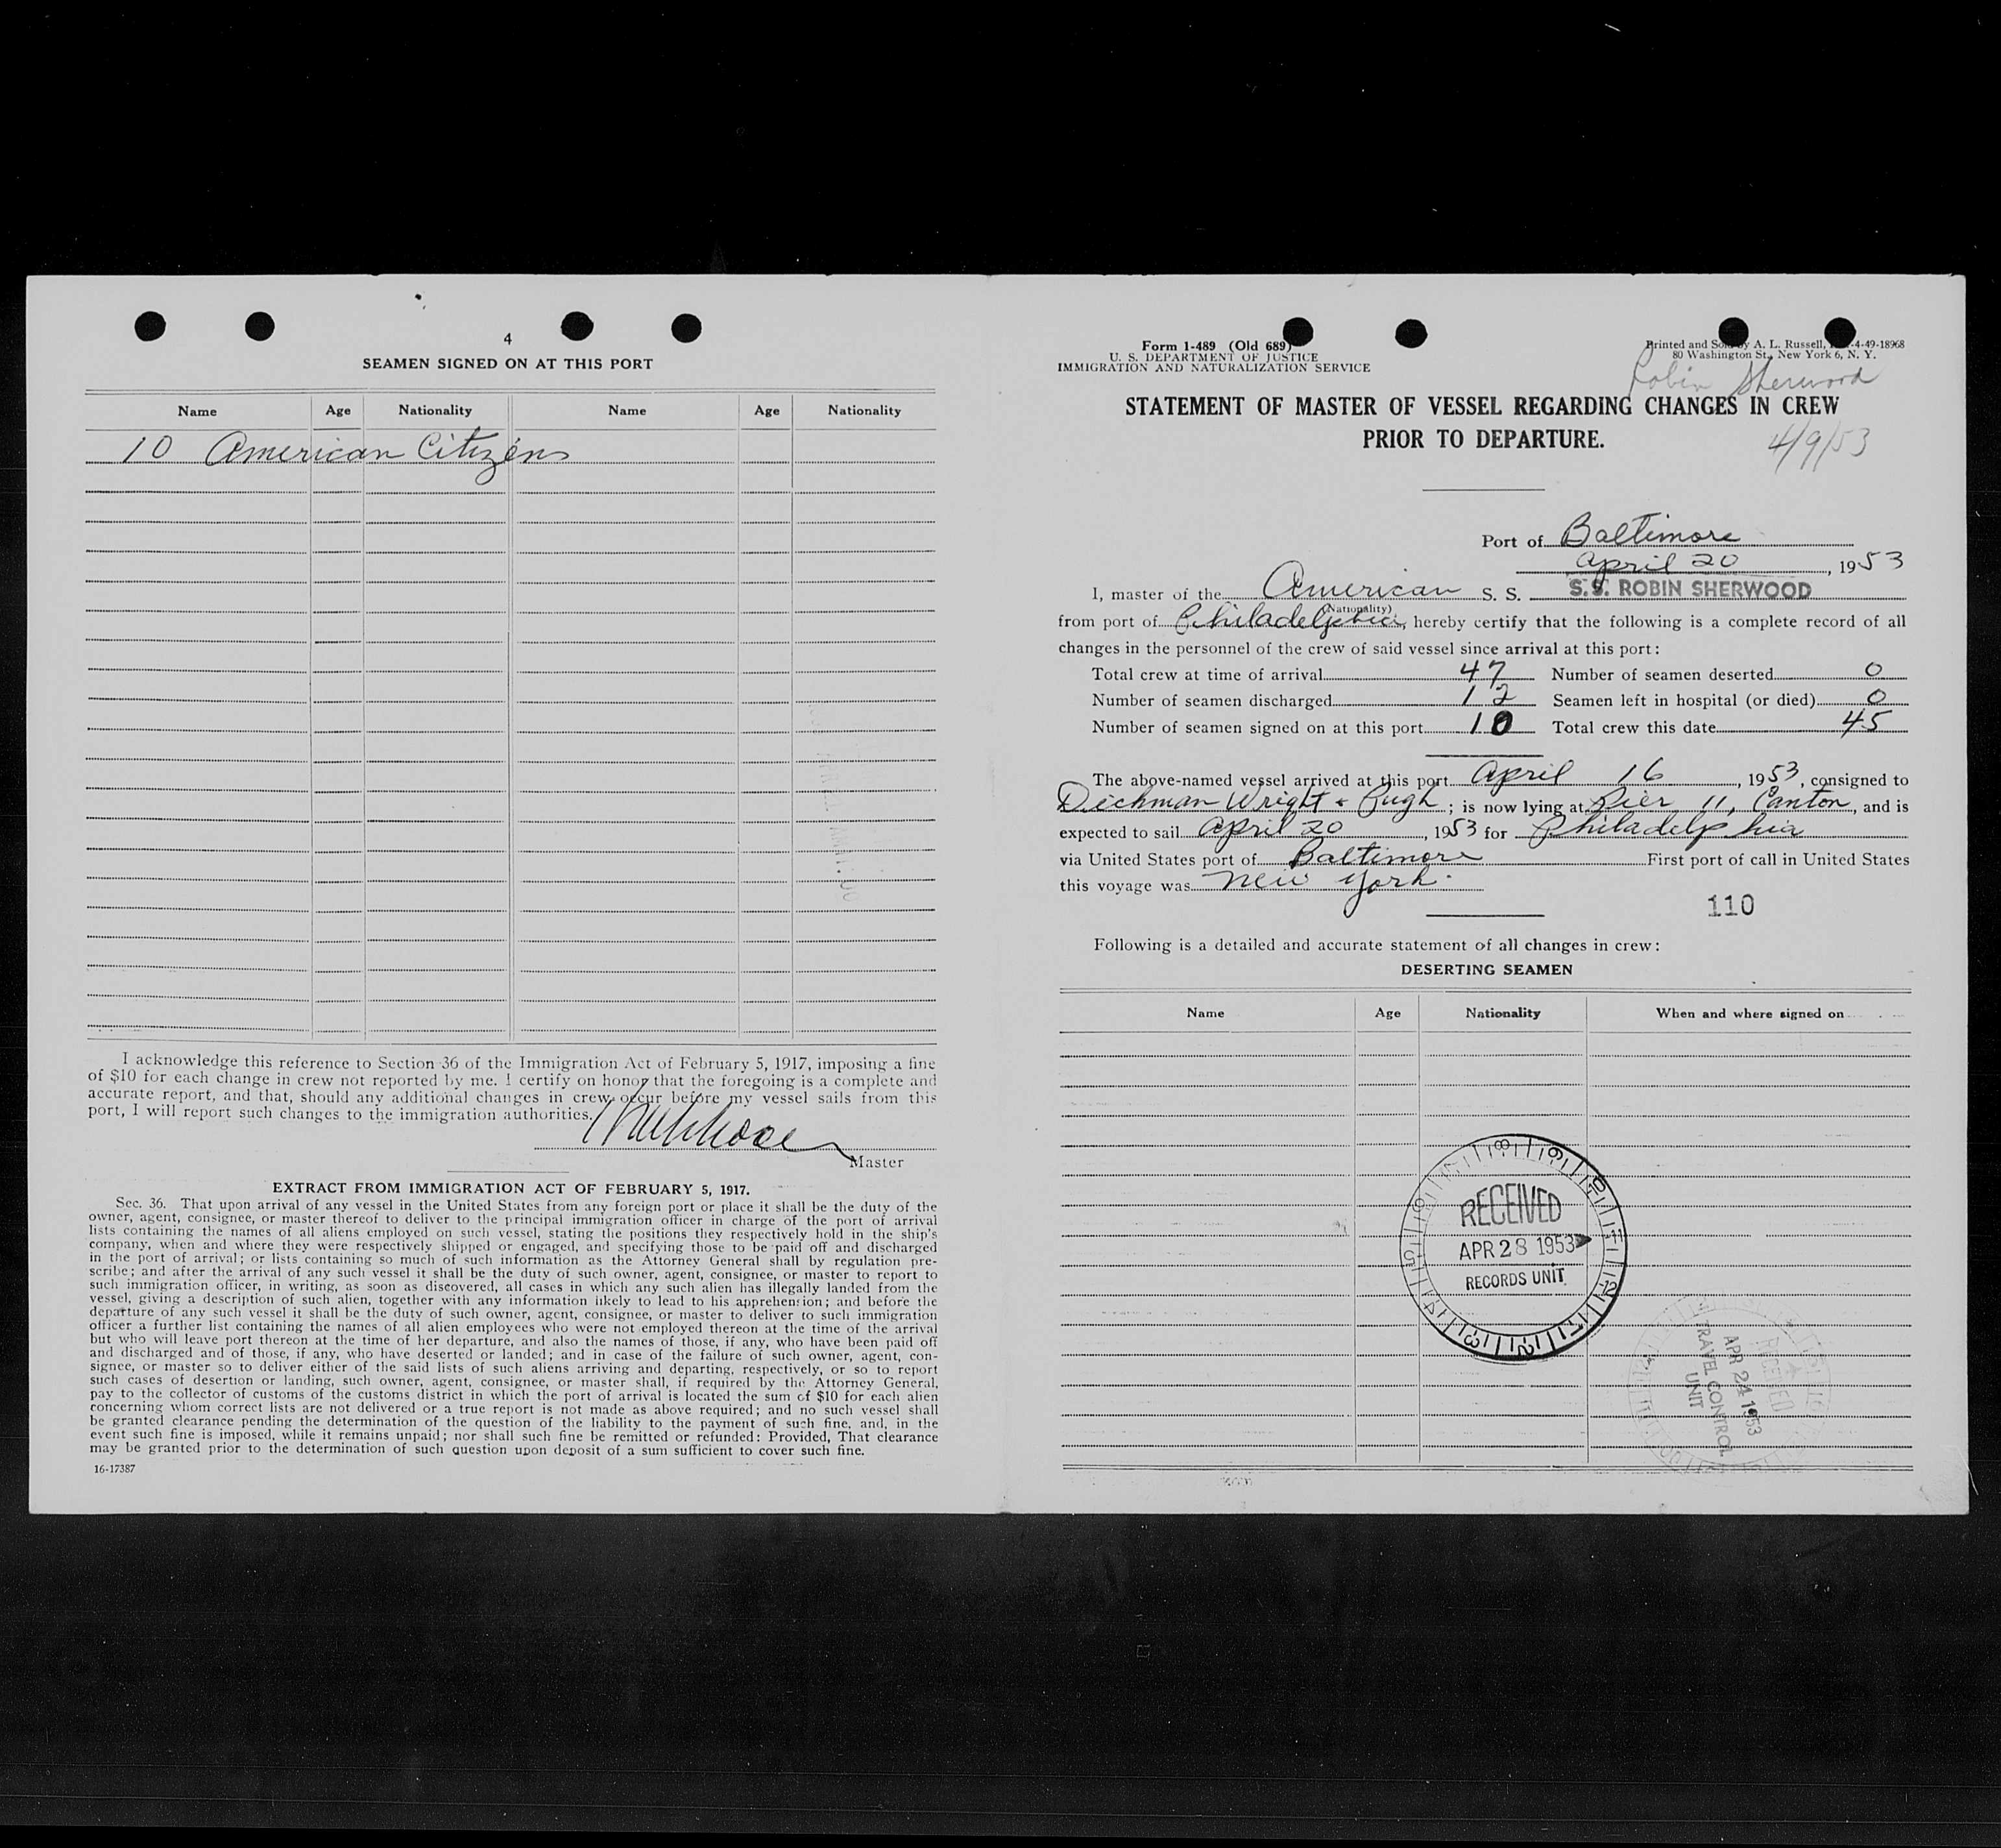 4
SEAMEN SIGNED ON AT THIS PORT
Name Age Nationality Name Age Nationality
10 American Citizens
I acknowledge this reference to Section 36 of the Immigration Act of February 5, 1917, imposing a fine
of $10 for each change in crew not reported by me. I certify on honor that the foregoing is a complete and
accurate report, and that, should any additional changes in crew occur before my vessel sails from this
port, I will report such changes to the immigration authorities.
Master
EXTRACT FROM IMMIGRATION ACT OF FEBRUARY 5, 1917.
Sec. 36. That upon arrival of any vessel in the United States from any foreign port or place it shall be the duty of the
owner, agent, consignee, or master thereof to deliver to the principal immigration officer in charge of the port of arrival
lists containing the names of all aliens employed on such vessel, stating the positions they respectively hold in the ship's
company, when and where they were respectively shipped or engaged, and specifying those to be paid off and discharged
in the port of arrival; or lists containing so much of such information as the Attorney General shall by regulation pre-
scribe; and after the arrival of any such vessel it shall be the duty of such owner, agent, consignee, or master to report to
such immigration officer, in writing, as soon as discovered, all cases in which any such alien has illegally landed from the
vessel, giving a description of such alien, together with any information likely to lead to his apprehension; and before the
departure of any such vessel it shall be the duty of such owner, agent, consignee, or master to deliver to such immigration
officer a further list containing the names of all alien employees who were not employed thereon at the time of the arrival
but who will leave port thereon at the time of her departure, and also the names of those, if any, who have been paid off
and discharged and of those, if any, who have deserted or landed; and in case of the failure of such owner, agent, con-
signee, or master so to deliver either of the said lists of such aliens arriving and departing, respectively, or so to report
such cases of desertion or landing, such owner, agent, consignee, or master shall, if required by the Attorney General,
pay to the collector of customs of the customs district in which the port of arrival is located the sum of $10 for each alien
concerning whom correct lists are not delivered or a true report is not made as above required; and no such vessel shall
be granted clearance pending the determination of the question of the liability to the payment of such fine, and, in the
event such fine is imposed, while it remains unpaid; nor shall such fine be remitted or refunded: Provided, That clearance
may be granted prior to the determination of such question upon deposit of a sum sufficient to cover such fine.
16-17387
Form 1-489 (Old 689)
U. S. DEPARTMENT OF JUSTICE
IMMIGRATION AND NATURALIZATION SERVICE
Printed and Sold by A. L. Russell, 4-49-18968
80 Washington St., New York 6, N. Y.
Robin Sherwood
STATEMENT OF MASTER OF VESSEL REGARDING CHANGES IN CREW
PRIOR TO DEPARTURE.
4/9/53
Port of Baltimore
April 20, 1953
I, master of the American S. S. S.S. ROBIN SHERWOOD
(Nationality)
from port of Philadelphia, hereby certify that the following is a complete record of all
changes in the personnel of the crew of said vessel since arrival at this port:
Total crew at time of arrival 47 Number of seamen deserted 0
Number of seamen discharged 12 Seamen left in hospital (or died) 0
Number of seamen signed on at this port 10 Total crew this date 45
The above-named vessel arrived at this port April 16, 1953, consigned to
Dichman Wright & Pugh; is now lying at Pier 11, Canton, and is
expected to sail April 20, 1953 for Philadelphia
via United States port of Baltimore First port of call in United States
this voyage was New York.
110
Following is a detailed and accurate statement of all changes in crew:
DESERTING SEAMEN
Name Age Nationality When and where signed on
RECEIVED
APR 28 1953
RECORDS UNIT
RECEIVED
APR 24 1953
TRAVEL CONTROL
UNIT